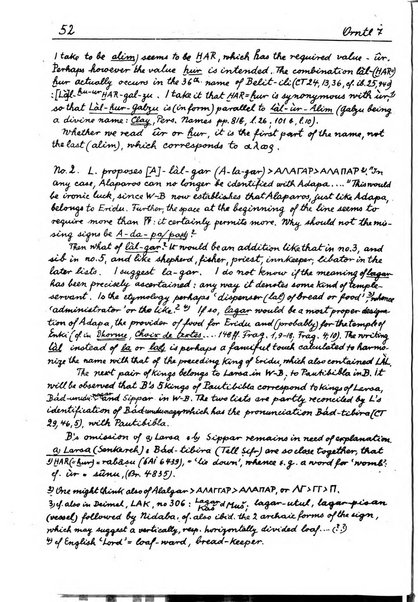 52 Orntl 7
I take to be alim) seems to be ḪAR, which has the required value - ūr.
Perhaps however the value ḫur is intended. The combination làl-(ḪAR)
ḫur actually occurs in the 36th name of Belit-ili (CT 24, 13, 36, cf. ib. 25,
: [Làl-ḫu-ur ḪAR-gal-zu. I take it that ḪAR = ḫur is synonymous with ūr
so that Làl-ḫur-galzu is (in form) parallel to Làl-ūr-Alim (galzu being
a divine name: Clay, Pers. Names pp. 81b, l. 26, 101 b, l. 10).
Whether we read ūr or ḫur, it is the first part of the name, not
the last (alim), which corresponds to αλος.
No. 2. L. proposes [A]-làl-gar (A-la-gar) > ΑΛΑΓΑΡ > ΑΛΑΠΑΡ "In
any case, Alaparos can no longer be identified with Adapa....." This would
be ironic luck, since W-B now establishes that Alaparos, just like Adapa,
belongs to Eridu. Further, the space at the beginning of the line seems to
require more than it certainly permits more. Why should not the mis-
sing signs be A-da-pa
Then what of làl-gar? It would be an addition like that in no. 3, and
sib in no. 5, and like shepherd, fisher, priest, innkeeper, libator in the
later lists. I suggest la-gar. I do not know if the meaning of lagar
has been precisely ascertained: any way it denotes some kind of temple-
servant. Is the etymology perhaps 'dispenser (lal) of bread or food' 3), whence
'administrator' or the like? 4) If so, lagar would be a most proper designa-
tion of Adapa, the provider of food for Eridu and (probably) for the temple of
Enki (cf. in Dhorme, Choix de textes.... 148 ff Frag. 1, 9-18, Frag. 4, 10). The writing
làl instead of la or lal is perhaps a fanciful touch calculated to harmo-
nize the name with that of the preceding King of Eridu, which also contained LÀL.
The next pair of Kings belongs to Larsa in W-B, to Pautibibla in B. It
will be observed that B's 5 Kings of Pautibibla correspond to Kings of Larsa,
Bád- and Sippar in W-B. The two lists are partly reconciled by L's
identification of Bád which has the pronunciation Bád-tibira (CT
29, 46, 5), with Pautibibla.
B's omission of a) Larsa & b) Sippar remains in need of explanation.
a) Larsa (Senkareh) & Bád-tibira (Tell Sifr) are so close together, that
1) ḪAR (= ḫur) = rabāṣu (SAI 6439), = 'lie down', whence e.g. a word for 'womb'.
cf. ūr = sūnu, (Br. 4835).
2) One might think also of Alalgar > ΑΛΑΓΓΑΡ > ΑΛΑΠΑΡ, or ΛΓ > ΓΓ > Π.
3) cf. also in Deimel, LAK, no 306: lagar-utul, lagar-pisan
(vessel) followed by Nidaba. cf. also ibid. the 2 archaic forms of the sign,
which may suggest a vertically, resp. horizontally divided loaf... (?.?)
4) cf English 'Lord' = loaf-ward, bread-keeper.